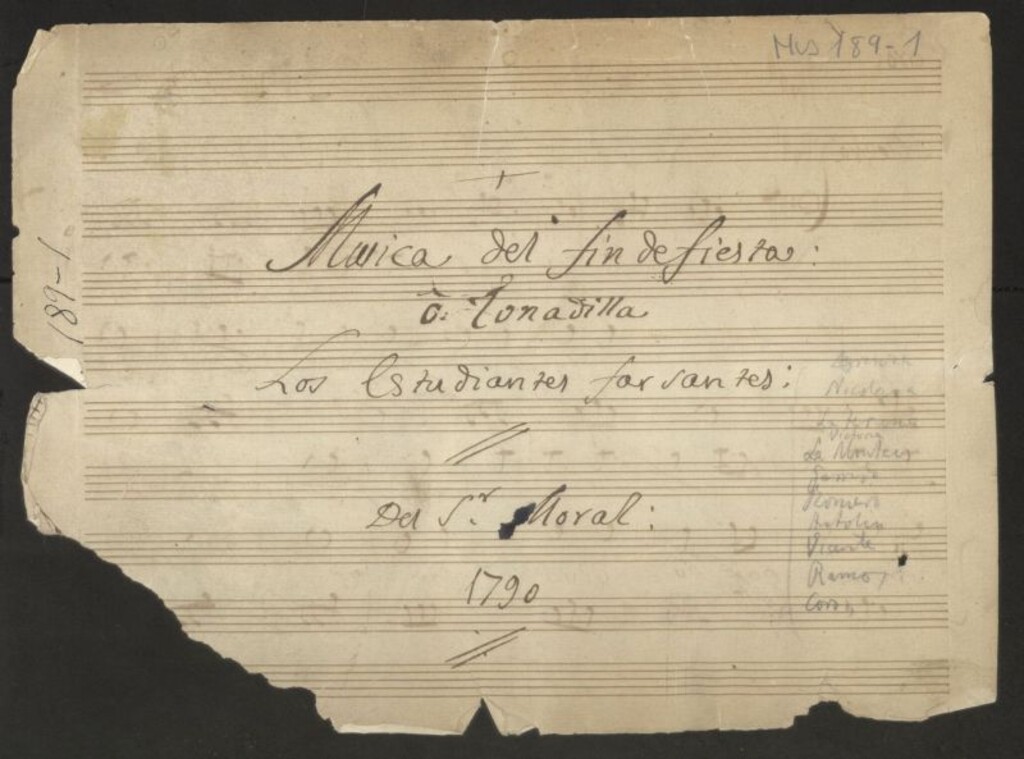 Mus 189-1
189-1
Musica del fin de fiesta:
ò: Tonadilla
Los Estudiantes farsantes:
Del S.r Moral:
1790
Nicolasa
Romero
Antolin
Vicente
Ramos